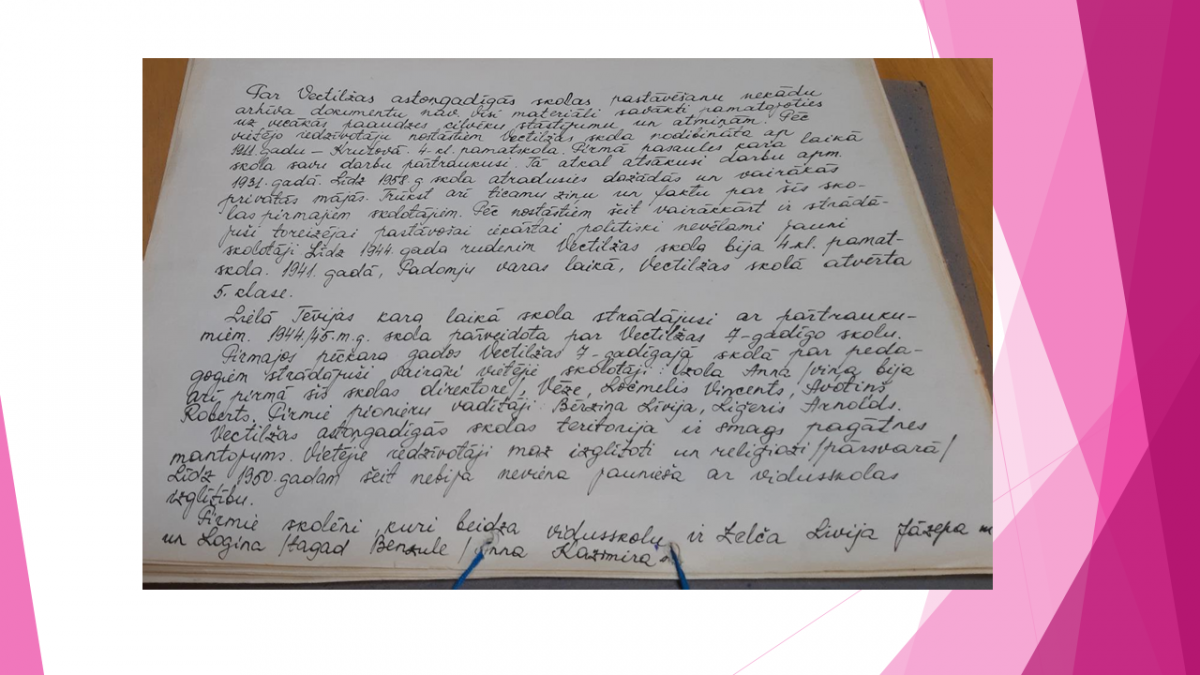 Par Vectilžas astoņgadīgās skolas pastāvēšanu nekādu
arhīva dokumentu nav, visi materiāli savākti pamatojoties
uz vecākās paaudzes cilvēku stāstījumu un atmiņām. Pēc
vietējo iedzīvotāju nostāstiem Vectilžas skola nodibināta ap
1911. gadu – 4. kl. pamatskola. Pirmā pasaules kara laikā
skola savu darbu pārtraukusi. Tā atkal atsākusi darbu apm.
1931. gadā. Līdz 1958. g skola atradusies dažādās un vairākās
privātās mājās. Trūkst arī ticamu ziņu un faktu par šīs sko-
las pirmajiem skolotājiem. Pēc nostāstiem šeit vairākkārt ir strādā-
juši toreizējai pastāvošai iekārtai politiski nevēlami jauni
skolotāji Līdz 1944. gada rudenim Vectilžas skola bija 4. kl. pamat-
skola. 1941. gadā, Padomju varas laikā, Vectilžas skolā atvērta
5. klase.
Lielā Tēvijas kara laikā skola strādājusi ar pārtrauku-
miem. 1944./45. m. g. skola pārveidota par Vectilžas 7-gadīgo skolu.
Pirmajos pēckara gados Vectilžas 7-gadīgajā skolā par peda-
gogiem strādājuši vairāki vietējie skolotāji: Uzola Anna /viņa bija
arī pirmā šīs skolas direktore/, Vēze, Ločmelis Vincents, Avotiņš
Roberts. Pirmie pionieru vadītāji: Bērziņa Līvija, Liģeris Arnolds.
Vectilžas astoņgadīgās skolas teritorija ir smags pagātnes
mantojums. Vietējie iedzīvotāji maz izglītoti un religiozi /pārsvarā/
Līdz 1950. gadam šeit nebija neviena jaunieša ar vidusskolas
izglītību.
Pirmie skolēni, kuri beidza vidusskolu ir Zelča Līvija Jāzepa m
un Logina /tagad Benzule/ Anna Kazimira m